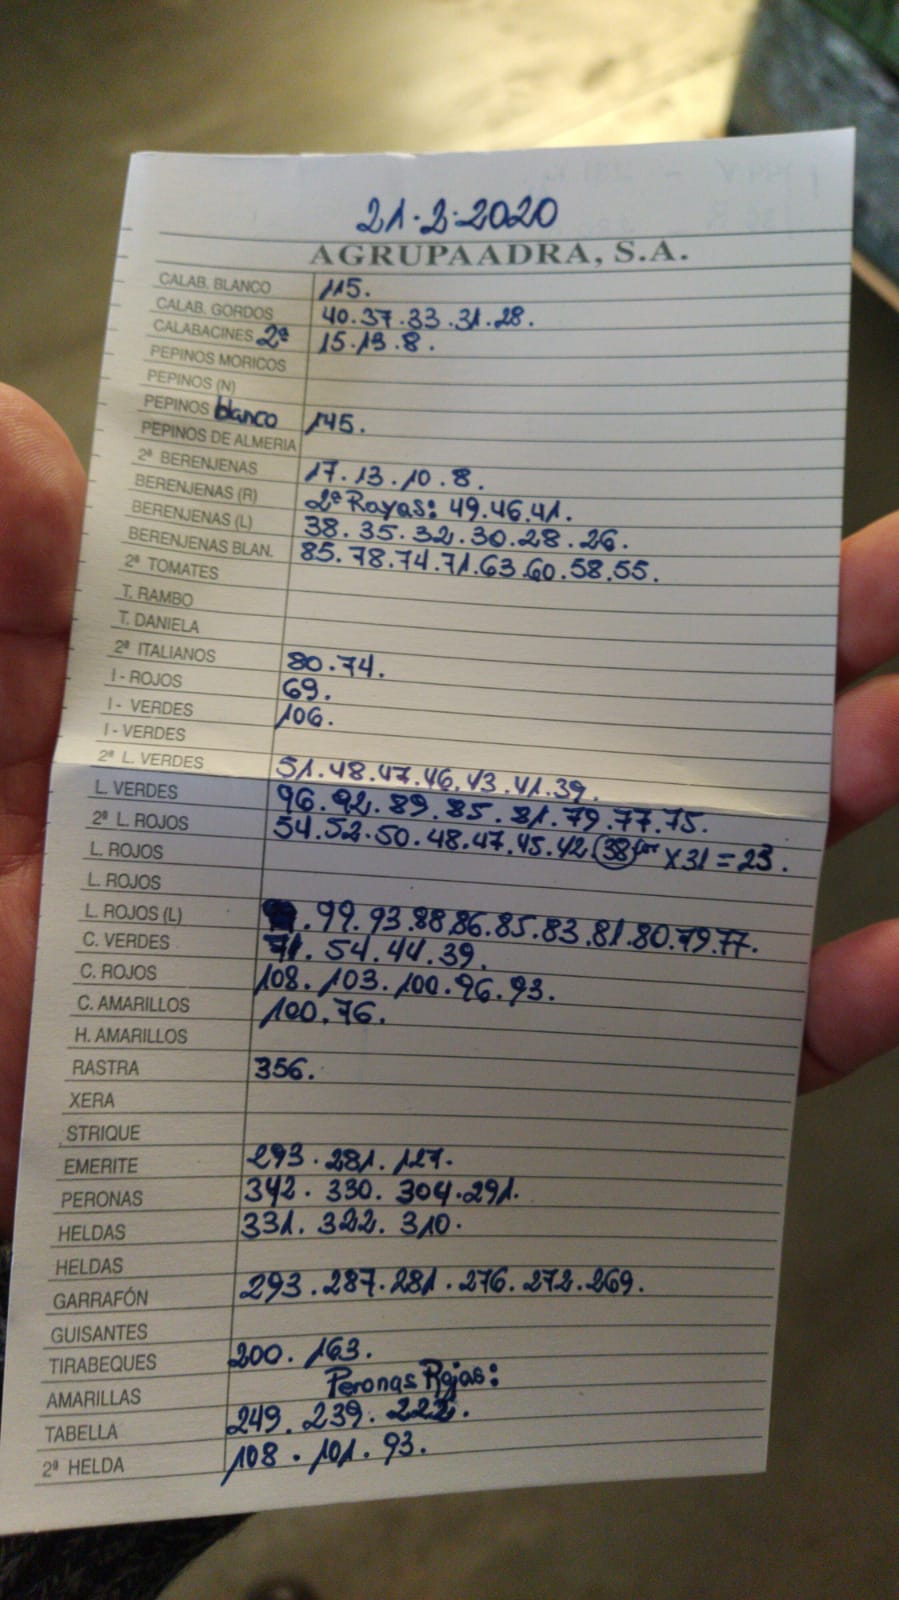 21.2.2020
AGRUPAADRA, S.A.
CALAB. BLANCO 115.
CALAB. GORDOS 40.37.33.31.28.
CALABACINES 2ª 15.13.8.
PEPINOS MORICOS
PEPINOS (N)
PEPINOS blanco 145.
PEPINOS DE ALMERIA
2ª BERENJENAS 17.13.10.8.
BERENJENAS (R) 2ª Rayas: 49.46.41.
BERENJENAS (L) 38.35.32.30.28.26.
BERENJENAS BLAN. 85.78.74.71.63.60.58.55.
2ª TOMATES
T. RAMBO
T. DANIELA
2ª ITALIANOS 80.74.
I - ROJOS 69.
I - VERDES 106.
I - VERDES
2ª L. VERDES 51.48.47.46.43.41.39.
L. VERDES 96.92.89.85.81.79.77.75.
2ª L. ROJOS 54.52.50.48.47.45.42.38 x31=23.
L. ROJOS
L. ROJOS
L. ROJOS (L) .99.93.88.86.85.83.81.80.79.77.
C. VERDES 71.54.44.39.
C. ROJOS 108.103.100.96.93.
C. AMARILLOS 100.76.
H. AMARILLOS
RASTRA 356.
XERA
STRIQUE
EMERITE 293.281.127.
PERONAS 342.330.304.291.
HELDAS 331.322.310.
HELDAS
GARRAFÓN 293.287.281.276.272.269.
GUISANTES
TIRABEQUES 200.163.
AMARILLAS Peronas Rojas:
TABELLA 249.239.222.
2ª HELDA 108.101.93.